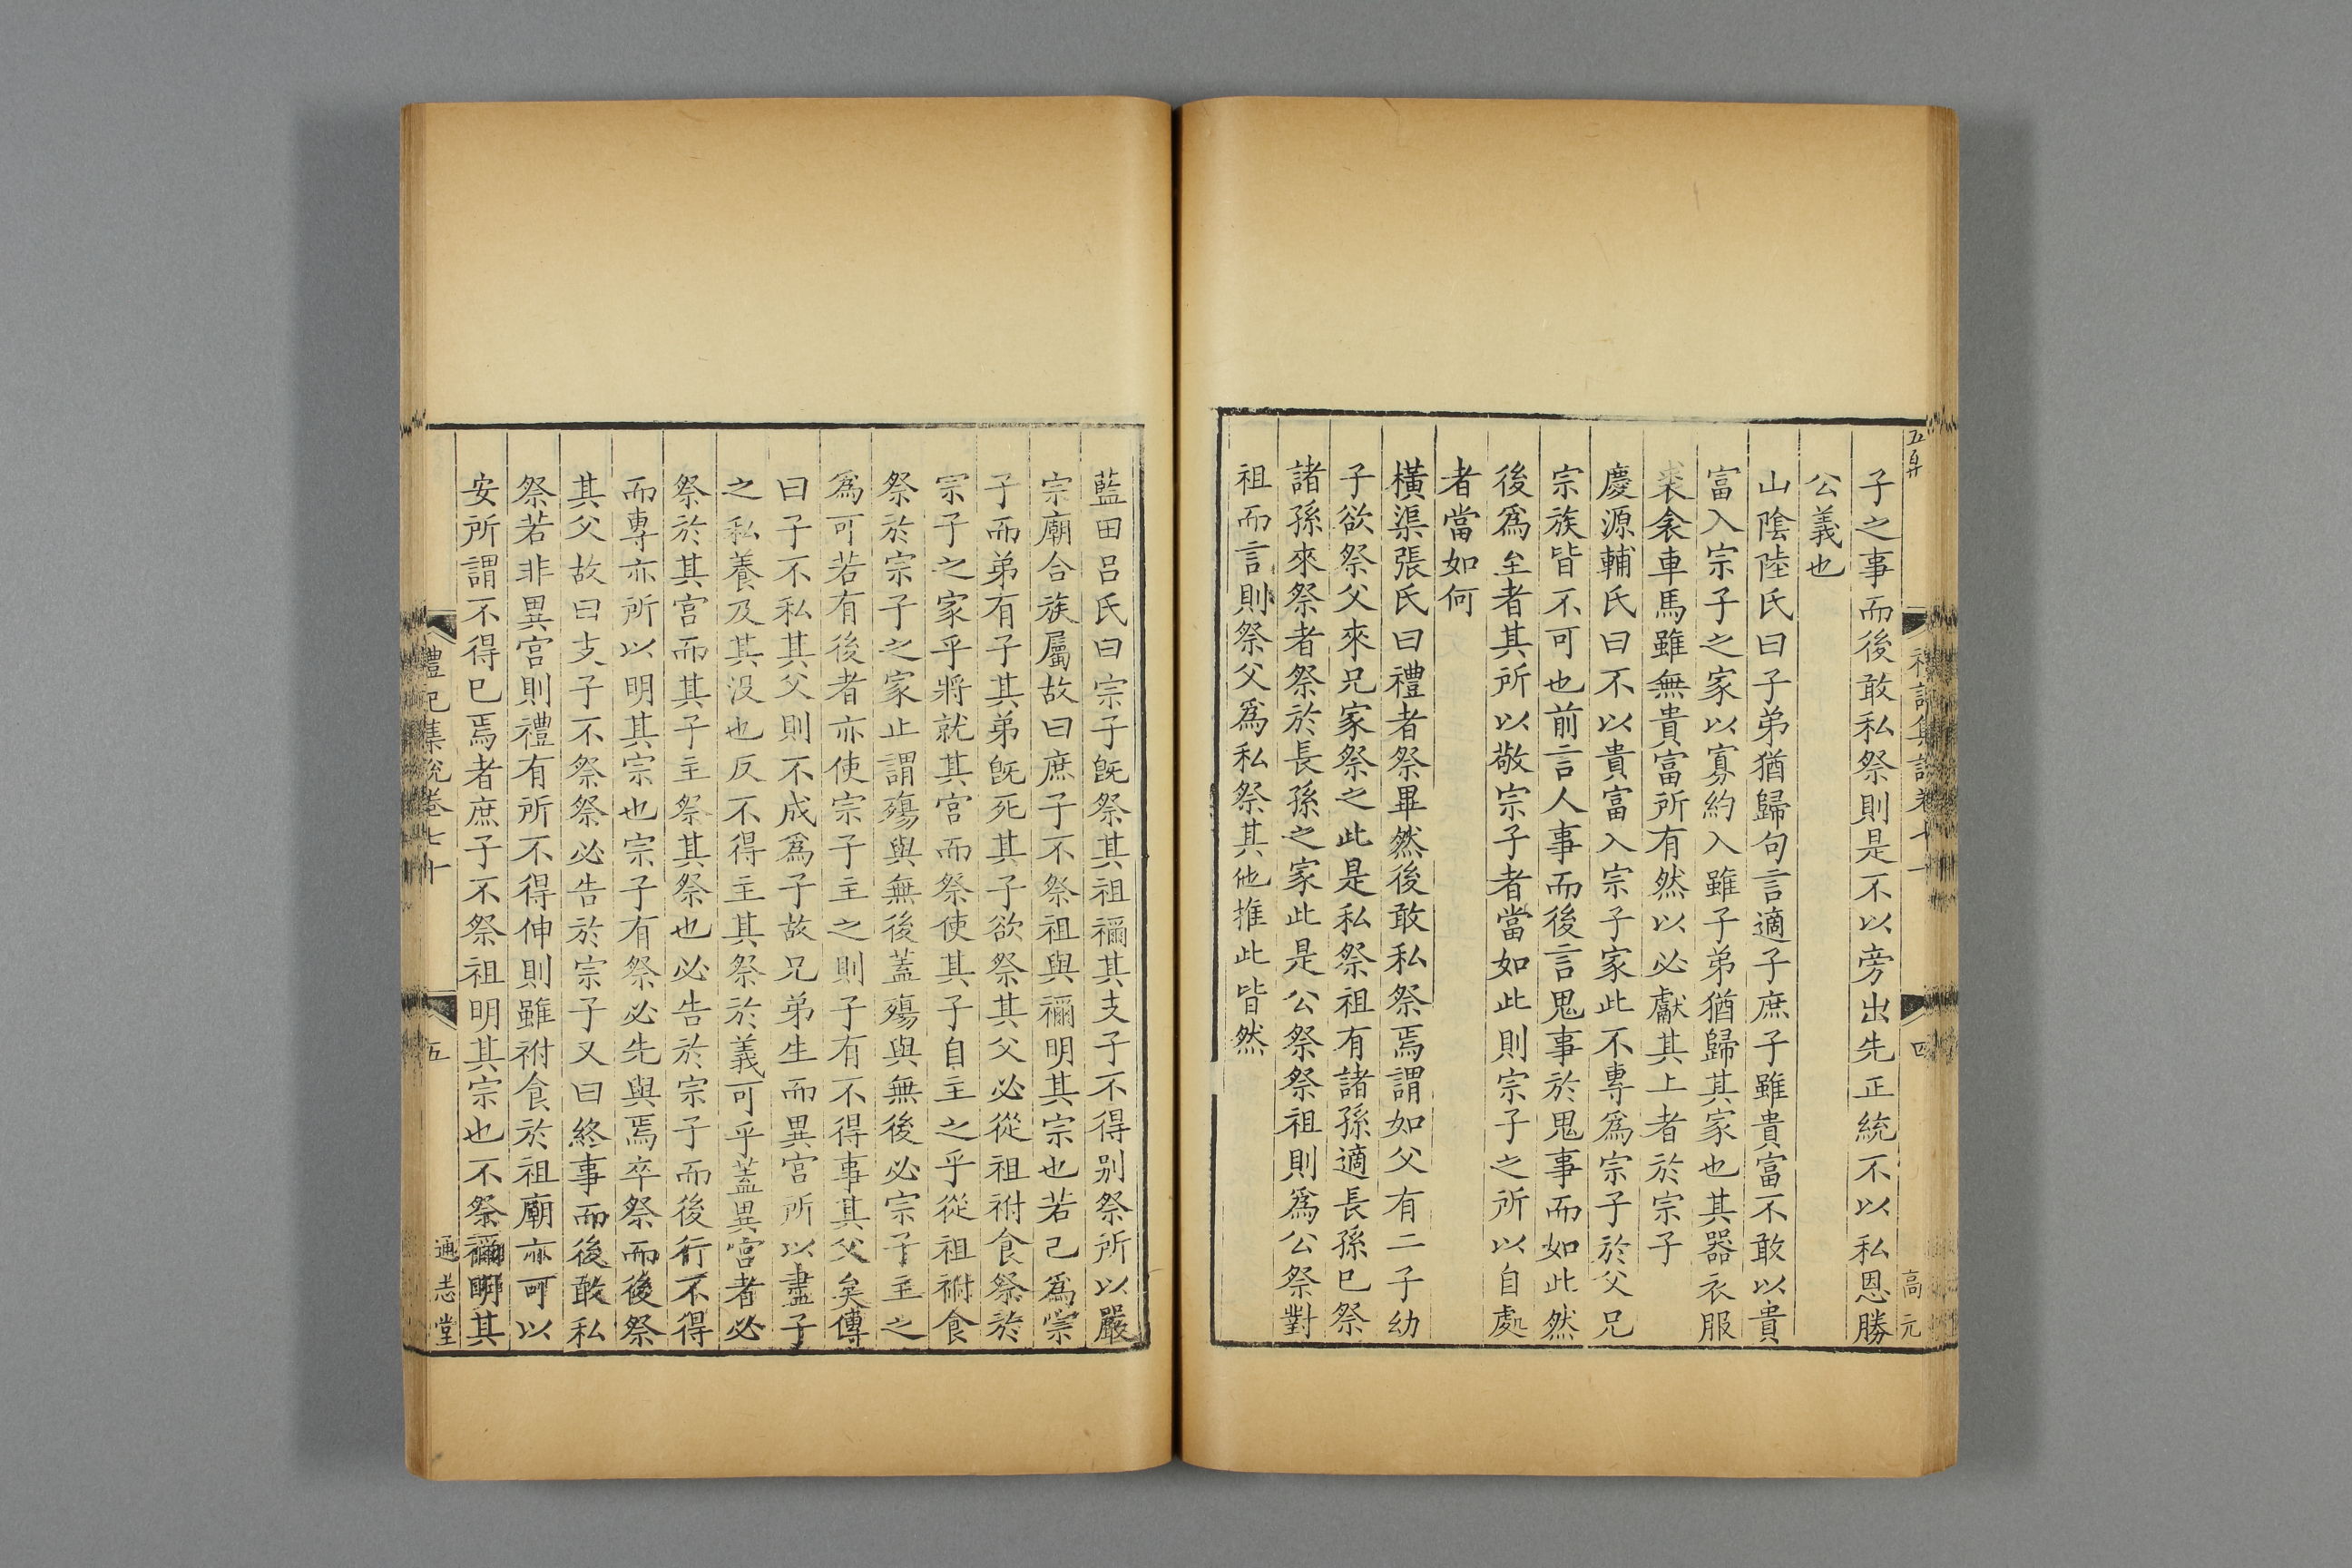 子之事而後敢私祭則是不以旁出先正統不以私恩勝
公義也
山陰陸氏曰子弟猶歸句言適子庶子雖貴富不敢以貴
富入宗子之家以寡約入雖子弟猶歸其家也其器衣服
裘衾車馬雖無貴富所有然以必獻其上者於宗子
慶源輔氏曰不以貴富入宗子家此不專爲宗子於父兄
宗族皆不可也前言人事而後言鬼事於鬼事而如此然
後爲至者其所以敬宗子者當如此則宗子之所以自處
者當如何
橫渠張氏曰禮者祭畢然後敢私祭焉謂如父有二子幼
子欲祭父來兄家祭之此是私祭祖有諸孫適長孫已祭
諸孫來祭者祭於長孫之家此是公祭祭祖則爲公祭對
祖而言則祭父爲私祭其他推此皆然
四
高元
藍田呂氏曰宗子旣祭其祖禰其支子不得别祭所以嚴
宗廟合族屬故曰庶子不祭祖與禰明其宗也若己爲宗
子而弟有子其弟旣死其子欲祭其父必從祖祔食祭於
宗子之家乎將就其宫而祭使其子自主之乎從祖祔食
祭於宗子之家止謂殤與無後蓋殤與無後必宗子主之
爲可若有後者亦使宗子主之則子有不得事其父矣傳
曰子不私其父則不成爲子故兄弟生而異宫所以盡子
之私養及其没也反不得主其祭於義可乎蓋異宫者必
祭於其宫而其子主祭其祭也必告於宗子而後行不得
而專亦所以明其宗也宗子有祭必先與焉卒祭而後祭
其父故曰支子不祭祭必告於宗子又曰終事而後敢私
祭若非異宫則禮有所不得伸則雖祔食於祖廟亦可以
安所謂不得已焉者庶子不祭祖明其宗也不祭禰明其
禮記集說卷七十
五
通志堂